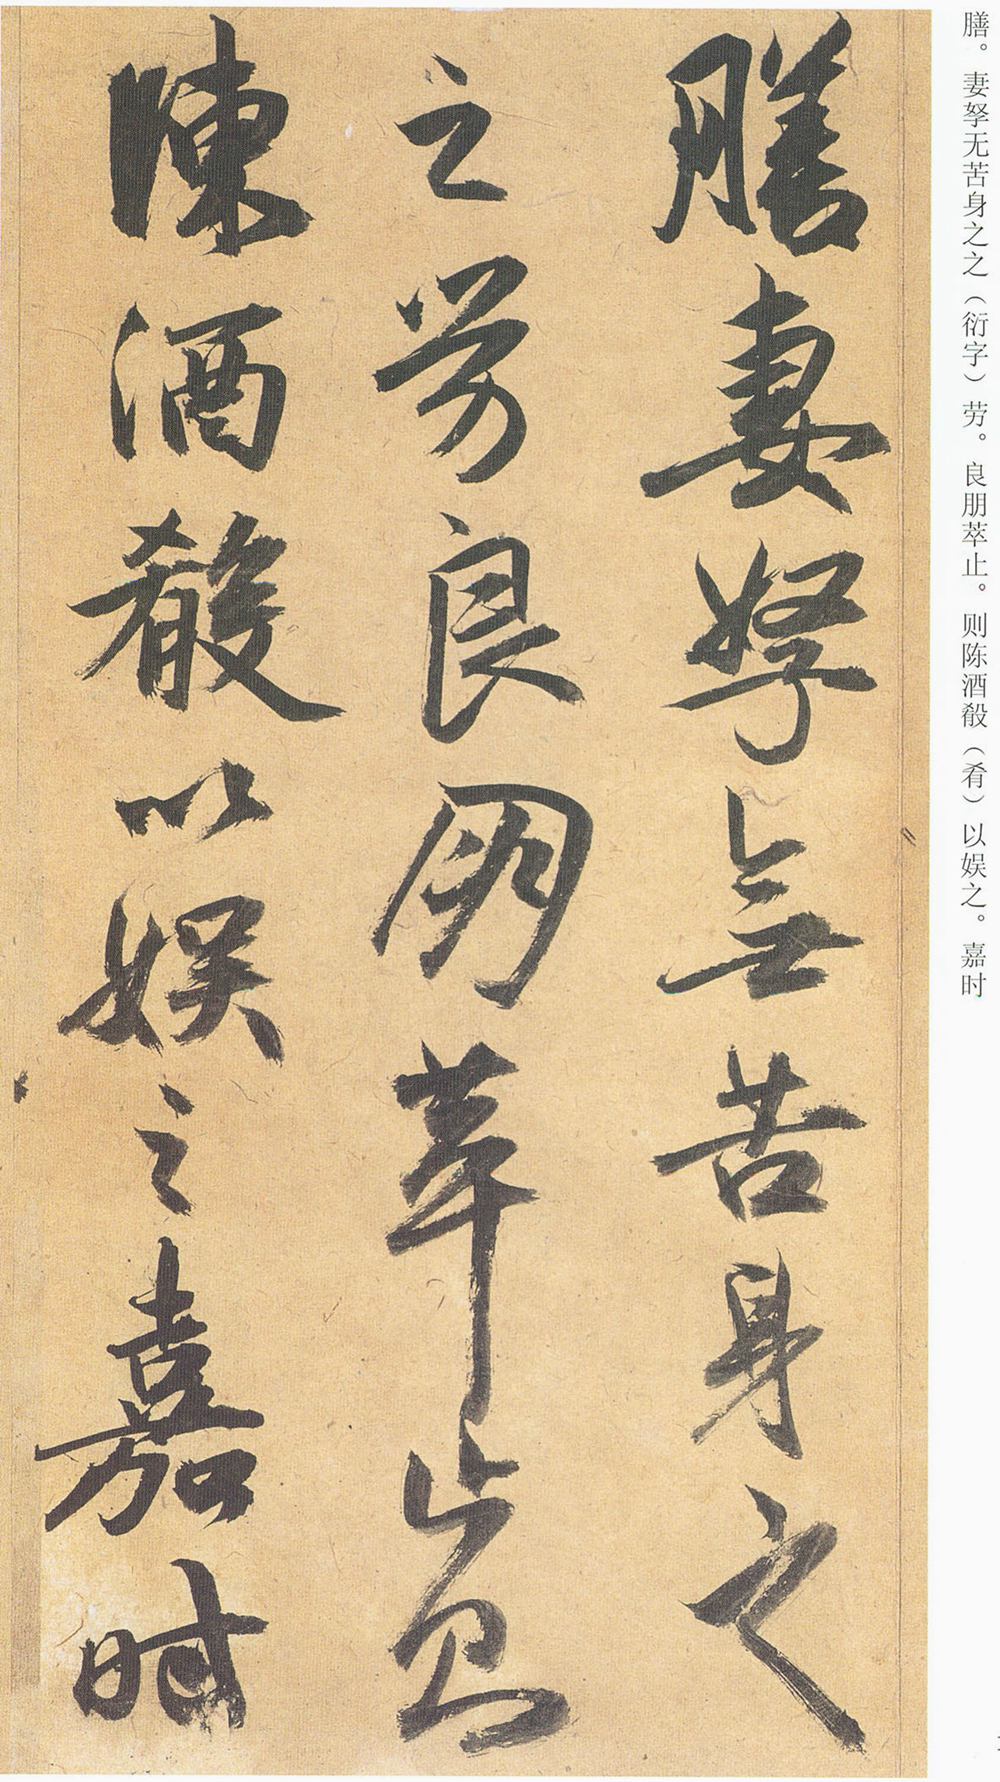 膳。妻孥无苦身之之（衍字）劳。良朋萃止。则陈酒殽（肴）以娱之。嘉时
膳妻孥無苦身之
之劳良朋萃止则
陳酒殽以娱之嘉时